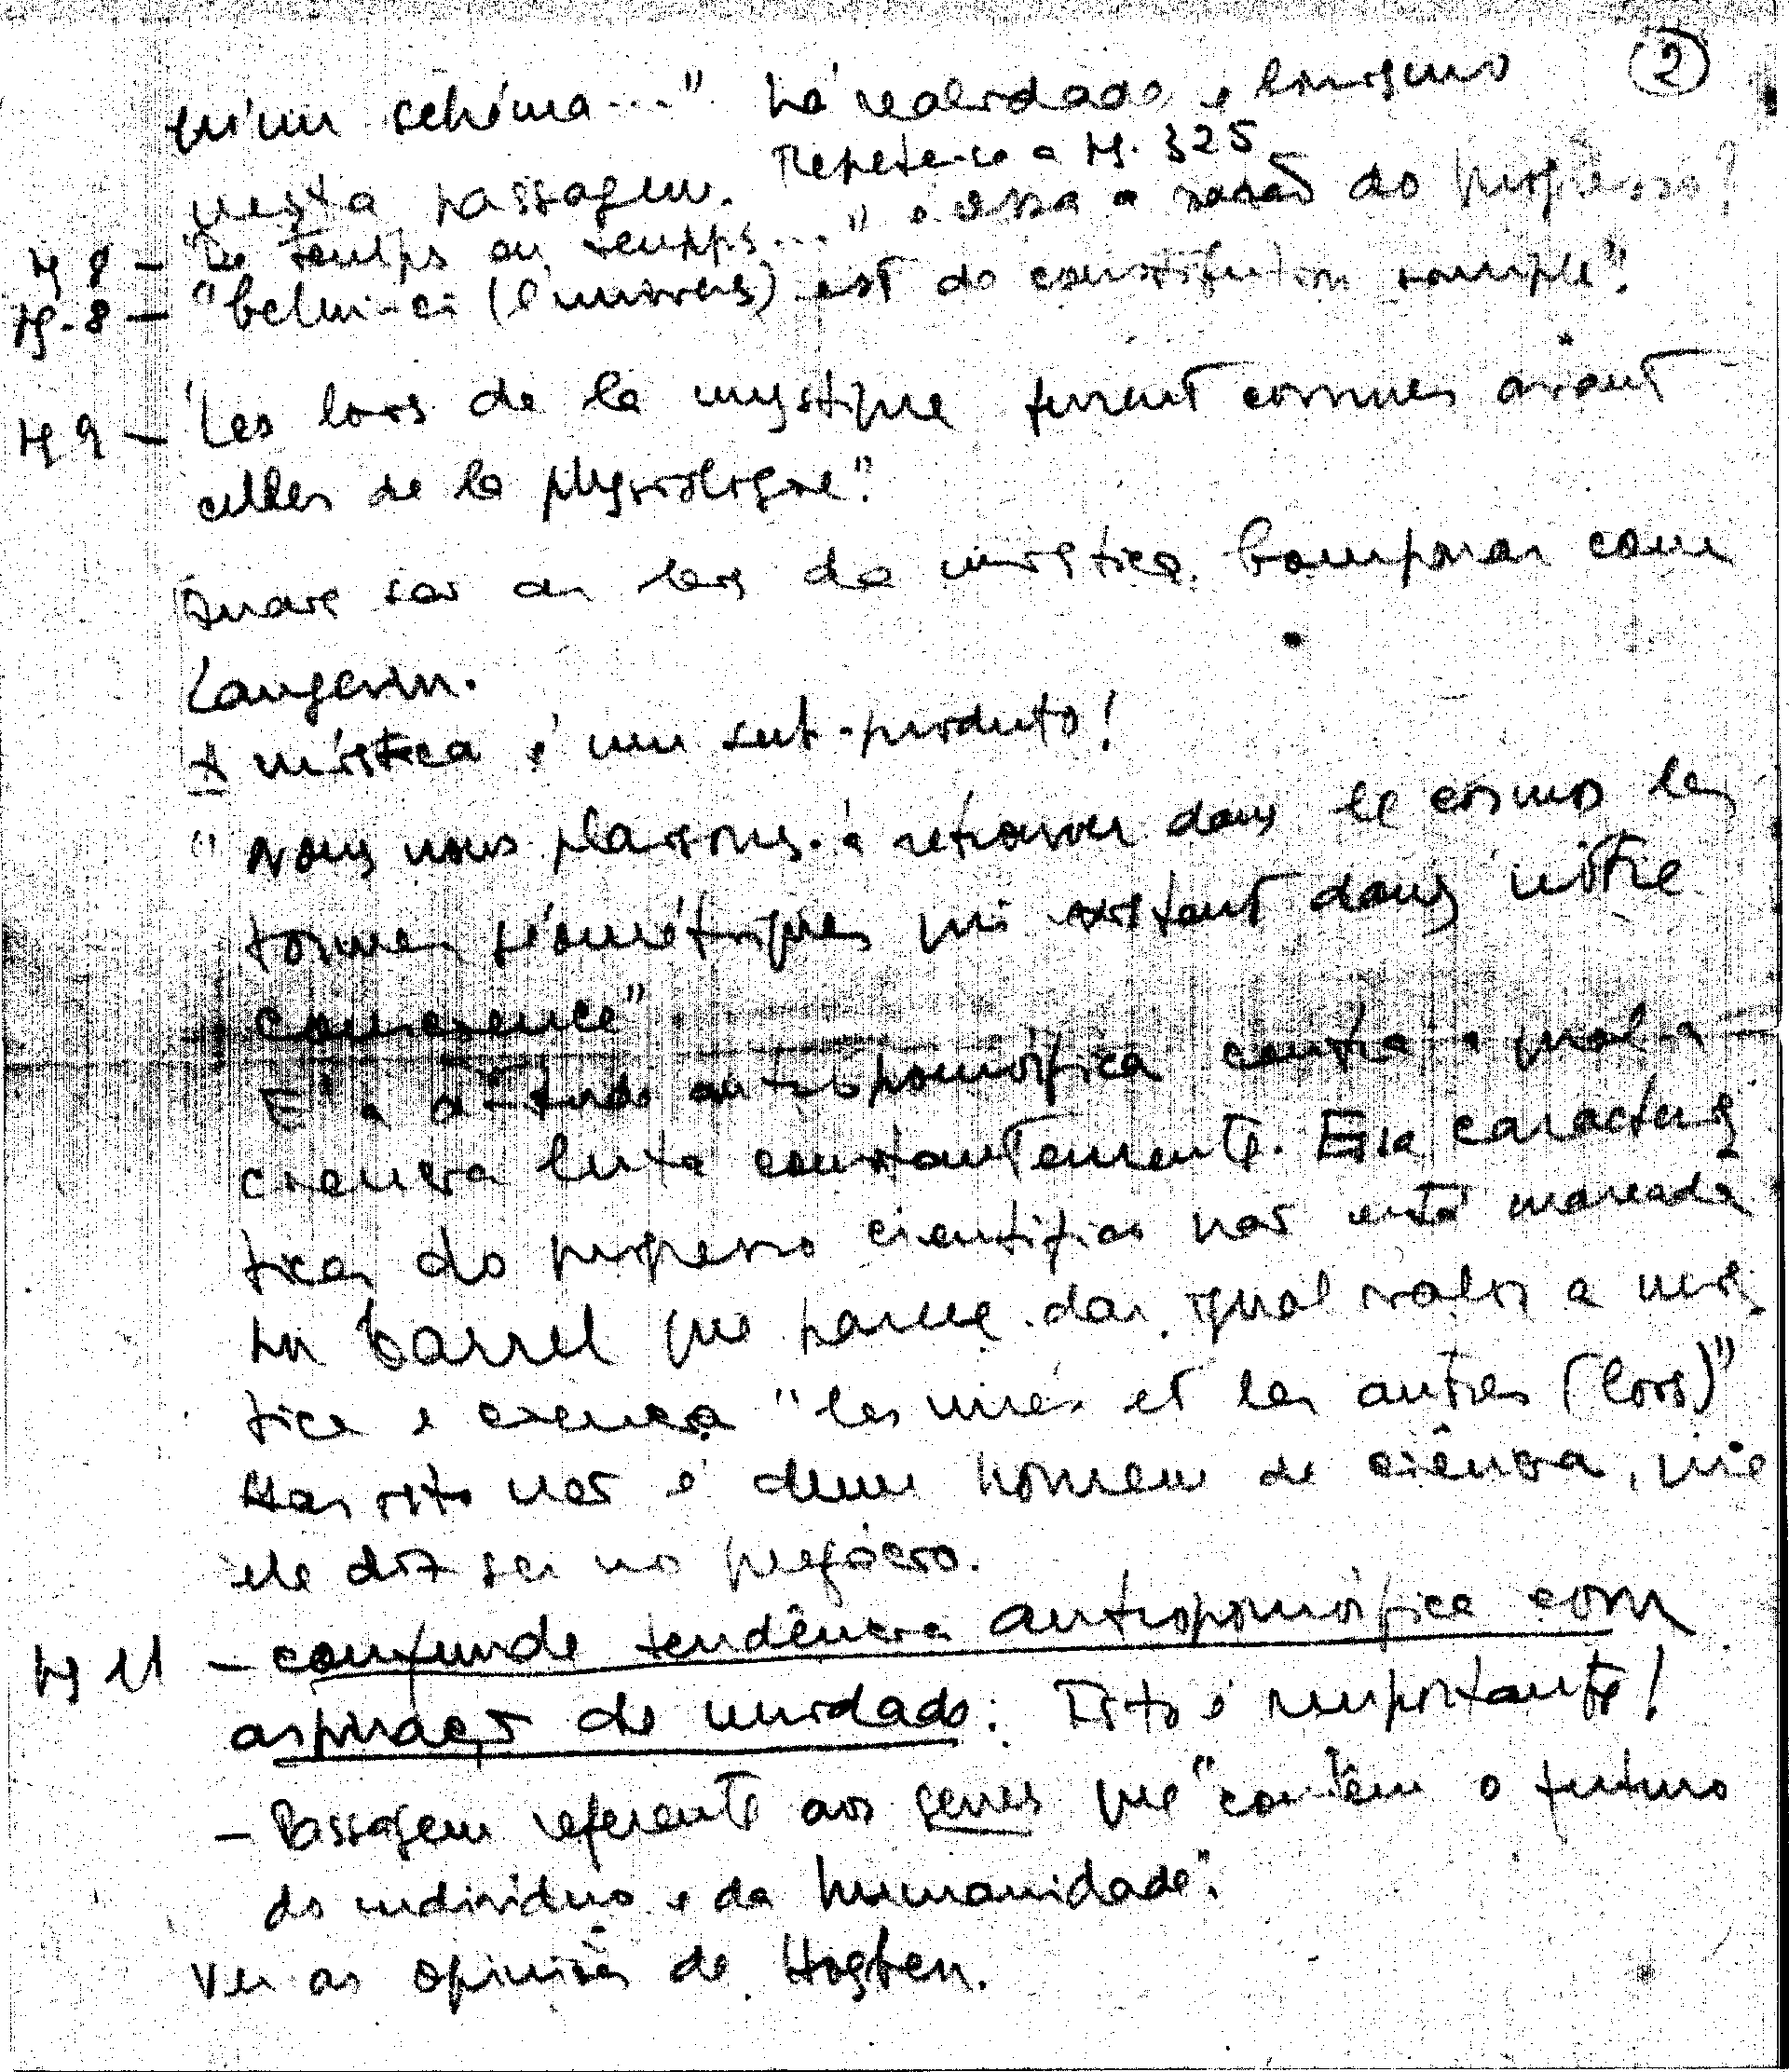 ②
qu'un schéma..." Há realidade e lirismo
nesta passagem. Repete-se a pg. 325
pg 8 - "De temps en temps..." é essa a razão do progresso?
pg. 8 - "Celui-ci (l'univers) est de constitution simple".
pg 9 - "Les lois de la mystique furent connues avant
celles de la physiologie".
Quais são as leis da mística. Comparar com
Langevin.
A mística é um sub-produto!
"Nous nous plaisons à retrouver dans le cosmos les
formes géométriques qui existent dans nôtre
conscience".
É a atitude antropomórfica contra a qual a
ciencia luta constantemente. Essa caracterís
tica do progresso cientifico não está marcada
por Carrel que parece dar igual valor a mís
tica e ciencia "les unes et les autres (lois)"
Mas isto não é dum homem de ciência, que
ele diz ser no prefácio.
pg 11 - confunde tendência antropomórfica com
aspiração de unidade: Isto é importante!
- Passagem referente aos genes que "contêm o futuro
do individuo e da humanidade".
Ver as opiniões de Hogben.